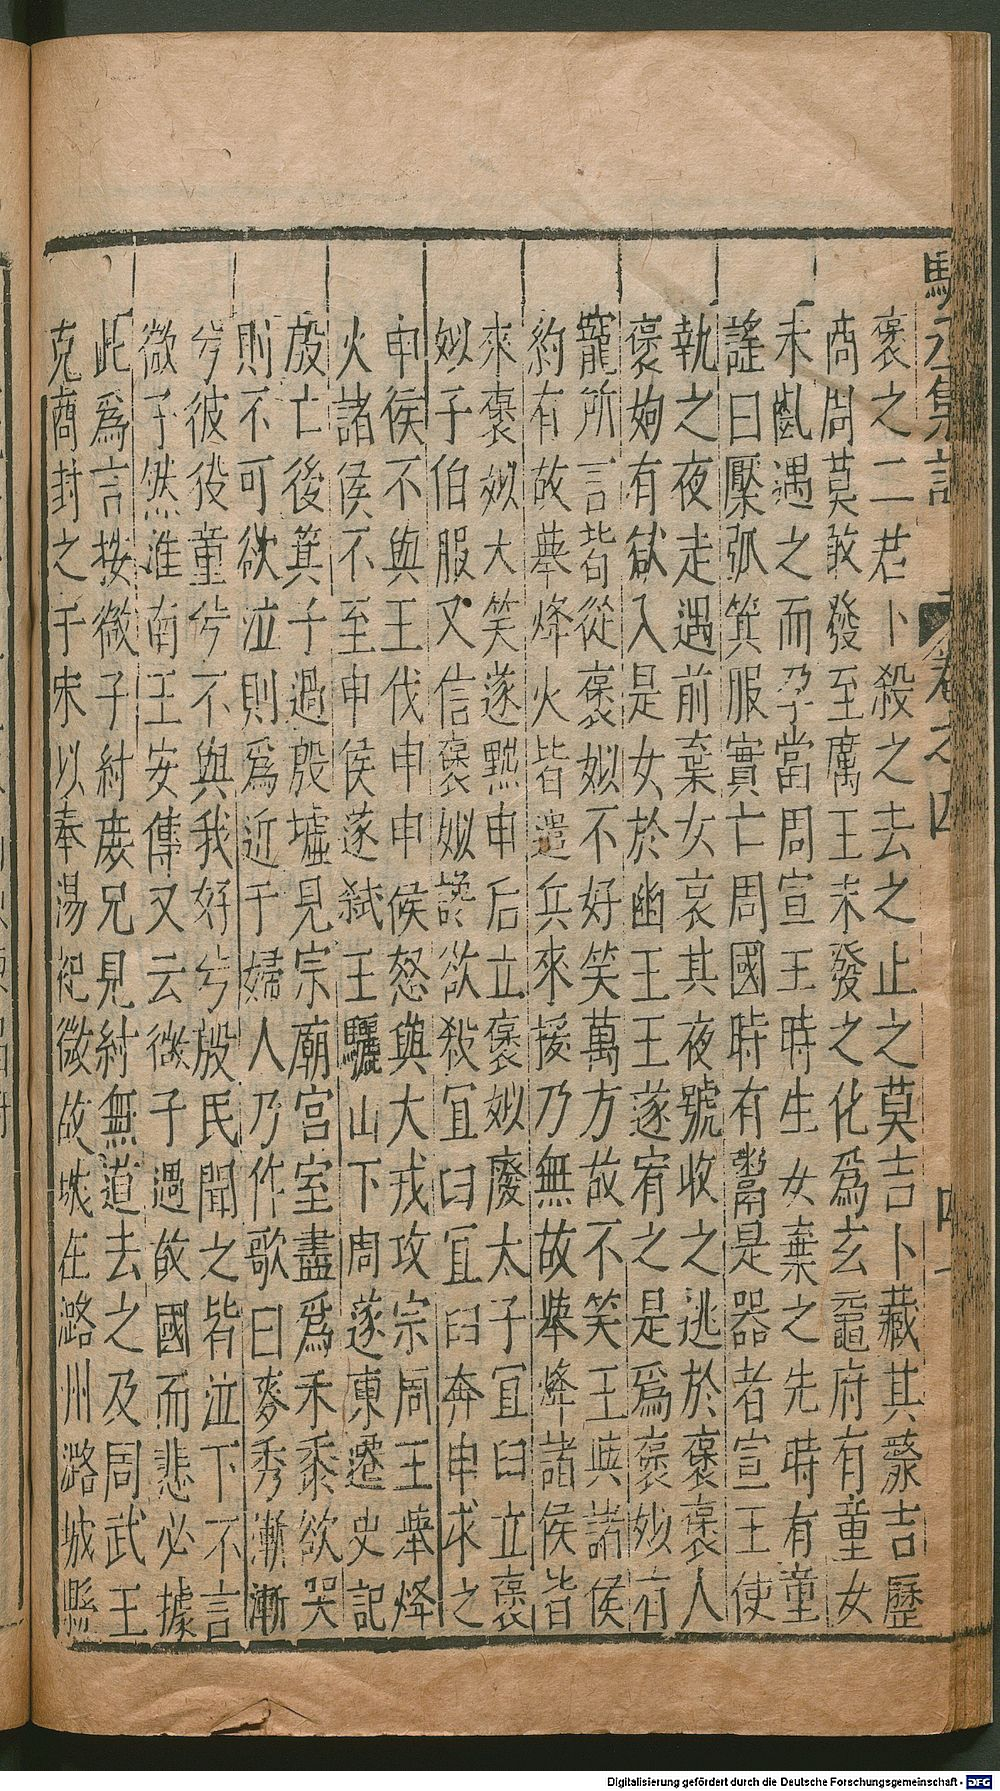 褒之二君卜殺之去之止之莫吉卜藏其漦吉歷
商周莫敢發至厲王末發之化爲玄黿府有童女
未齔遇之而孕當周宣王時生女棄之先時有童
謠曰檿弧箕服實亡周國時有鬻是器者宣王使
執之夜走遇前棄女哀其夜號收之逃於褒褒人
褒姁有獄入是女於幽王王遂宥之是爲褒姒有
寵所言皆從褒姒不好笑萬方故不笑王與諸侯
約有故舉烽火皆遣兵來援乃無故舉烽諸侯皆
來褒姒大笑遂黜申后立褒姒廢太子宜臼立褒
姒子伯服又信褒姒讒欲殺宜臼宜臼奔申求之
申侯不與王伐申申候怒與大戎攻宗周王舉烽
火諸侯不至申侯遂弒王驪山下周遂東遷史記
殷亡後箕子過殷墟見宗廟宮室盡爲禾黍欲哭
則不可欲泣則爲近于婦人乃作歌曰麥秀漸漸
兮彼役童兮不與我好兮殷民聞之皆泣下不言
微子然淮南王安傳又云微子過故國而悲必據
此爲言按微子紂庶兄見紂無道去之及周武王
克商封之于宋以奉湯祀微故城在潞州潞城縣
卷之四
Digitalisierung gefördert durch die Deutsche Forschungsgemeinschaft - DFG